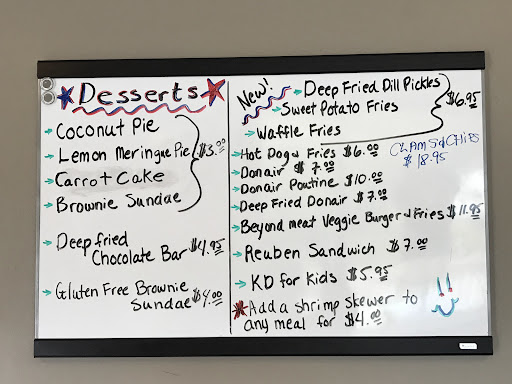 Desserts
Coconut Pie
Lemon Meringue Pie
Carrot Cake
Brownie Sundae
$3.00
Deep fried
Chocolate Bar $4.95
Gluten Free Brownie
Sundae $4.00
New!
Deep Fried Dill Pickles
Sweet Potato Fries
Waffle Fries
$6.95
Hot Dog & Fries $6.00
CLAMS & CHIPS
$18.95
Donair $7.00
Donair Poutine $10.00
Deep Fried Donair $7.00
Beyond meat Veggie Burger & Fries $11.95
Reuben Sandwich $7.00
KD for Kids $5.95
Add a shrimp skewer to
any meal for $4.00